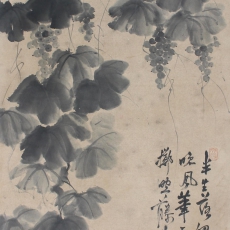 半生落
晚風筆
擲野藤